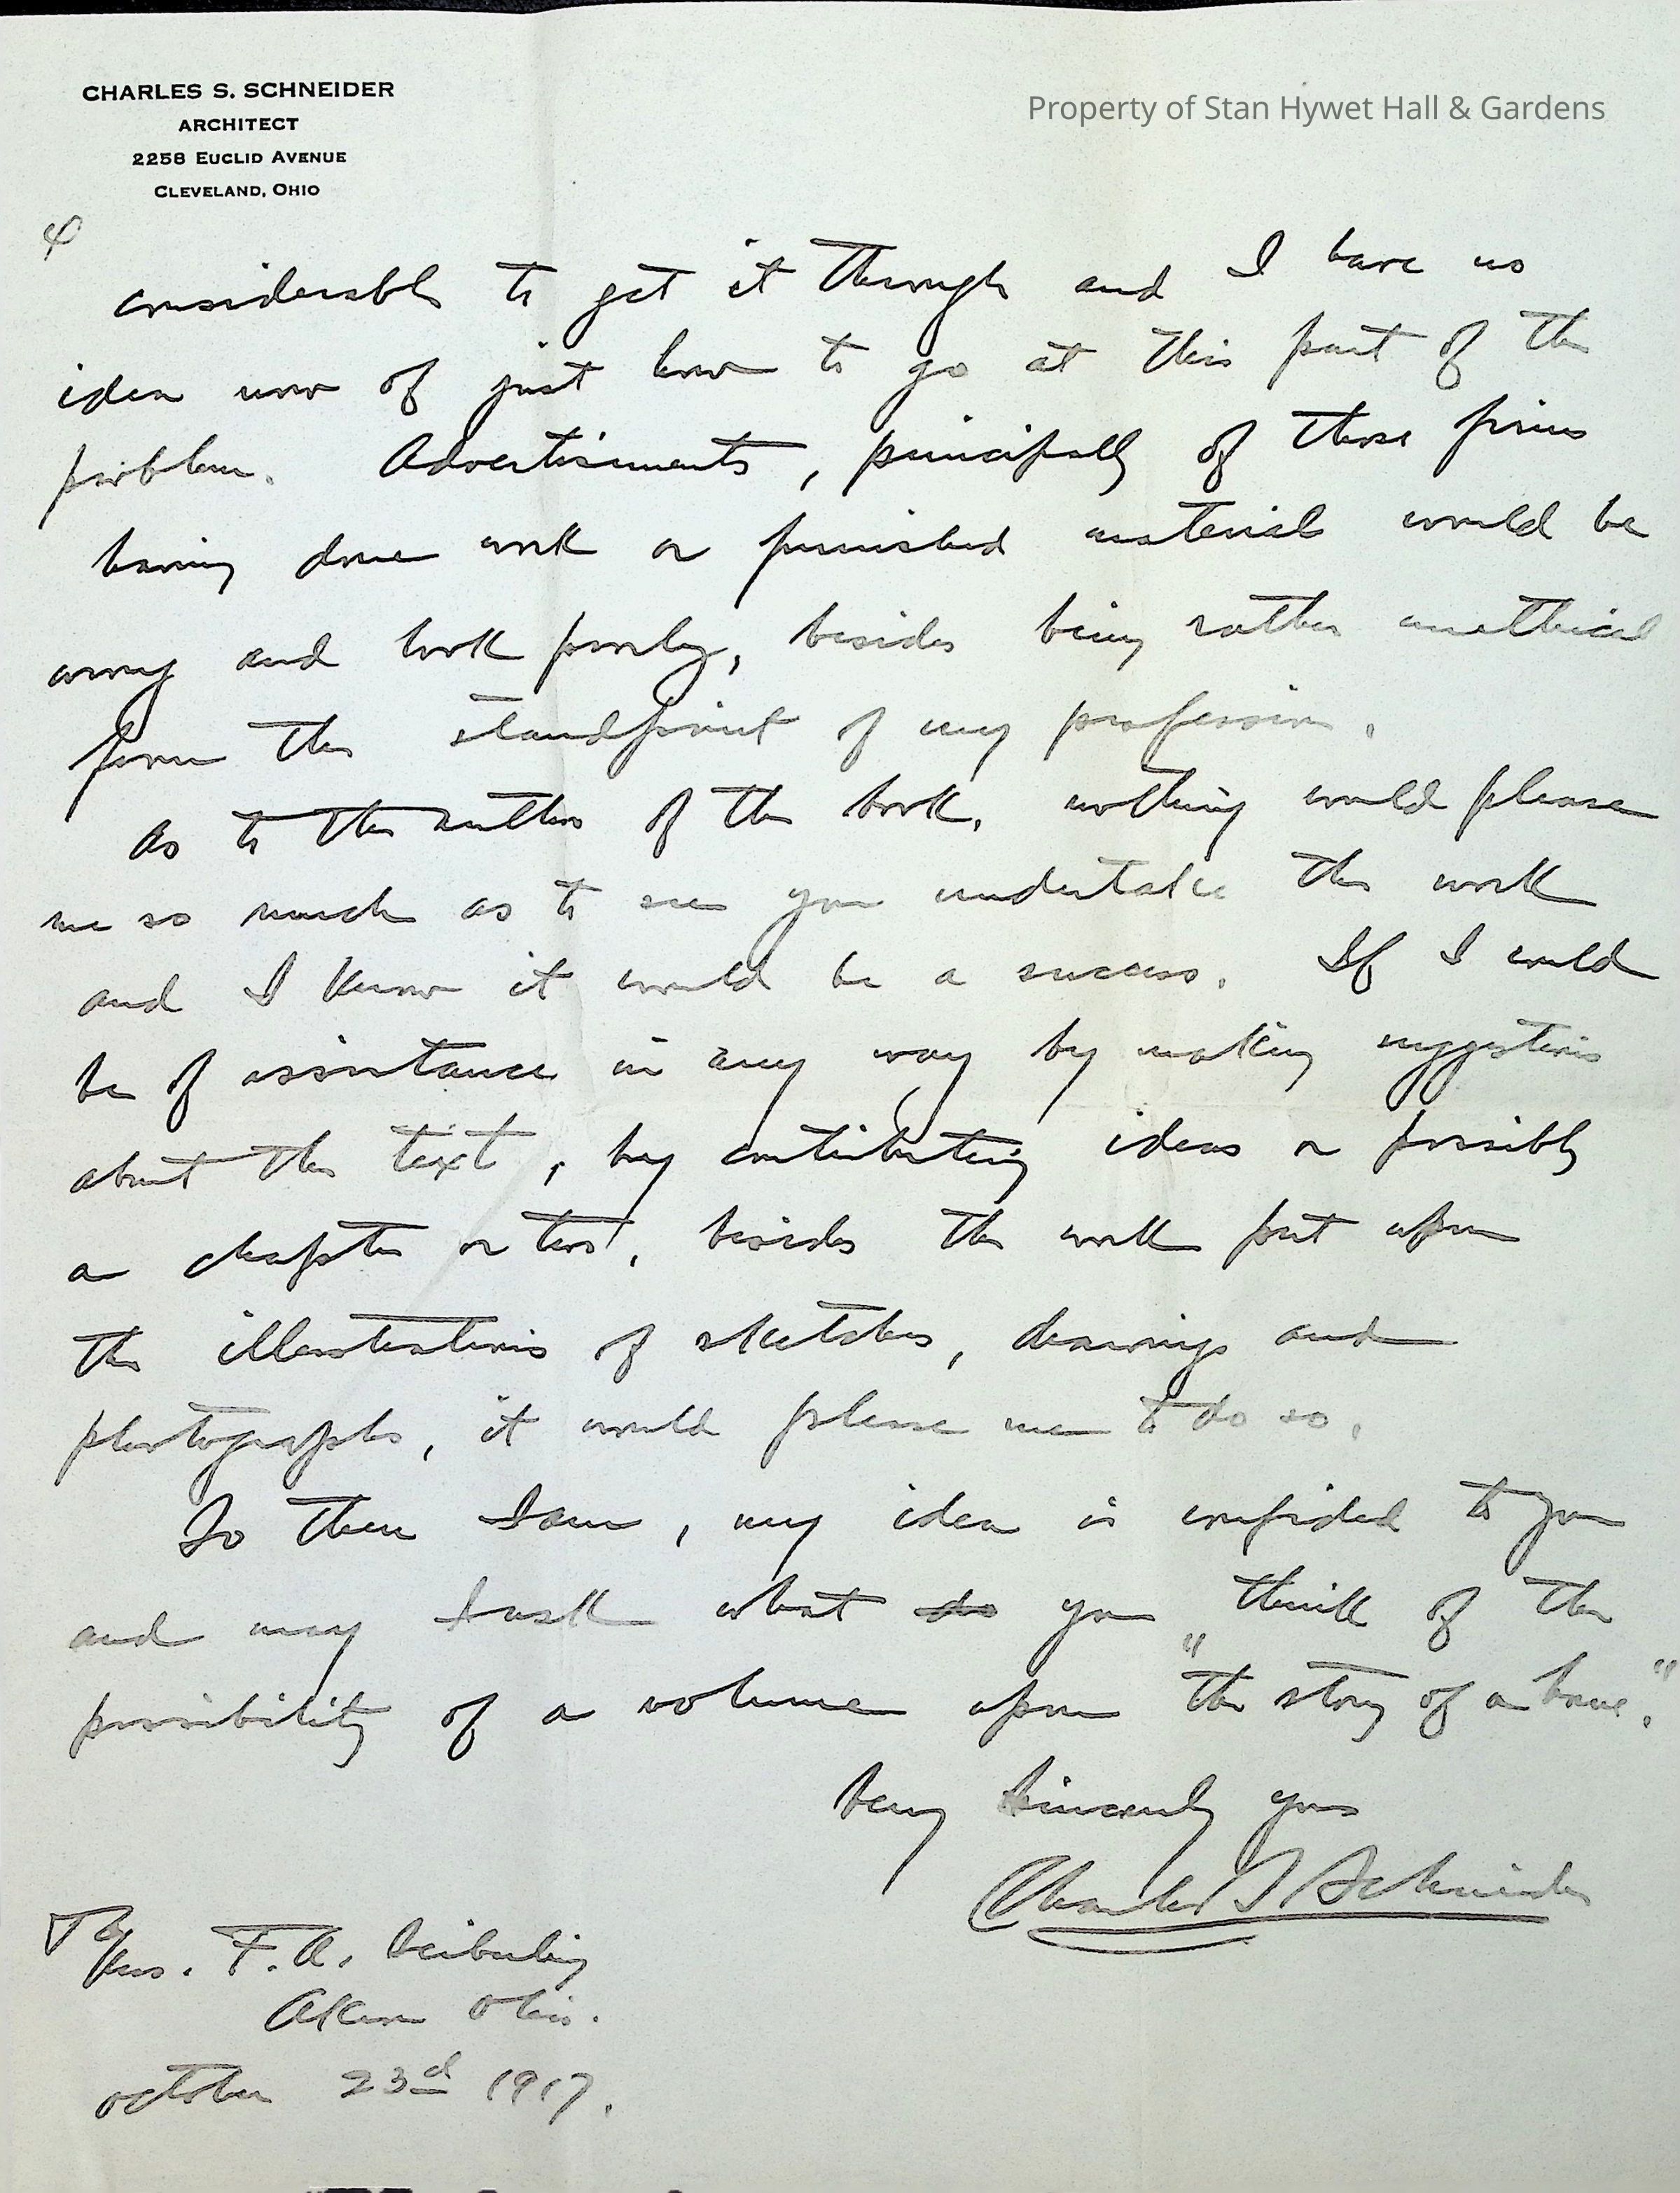 CHARLES S. SCHNEIDER
ARCHITECT
2258 EUCLID AVENUE
CLEVELAND, OHIO
Property of Stan Hywet Hall & Gardens
4
considerable to get it through and I have no
idea now of just how to go at this part of the
problem. Advertisements, principally of those firms
having done work or furnished material would be
wrong and look poorly, besides being rather unethical
from the standpoint of my profession.
As to the author of the book, nothing would please
me so much as to see you undertake the work
and I know it would be a success. If I could
be of assistance in any way by making suggestions
about the text, by contributing ideas or possibly
a chapter or two, besides the work put upon
the illustrations of sketches, drawings and
photographs, it would please me to do so.
So there I am, my idea is confided to you
and may I ask what do you think of the
possibility of a volume upon "the story of a house."
Very Sincerely yours
Charles S Schneider
To
Mrs. F. A. Seiberling
Akron Ohio.
October 23d 1917.